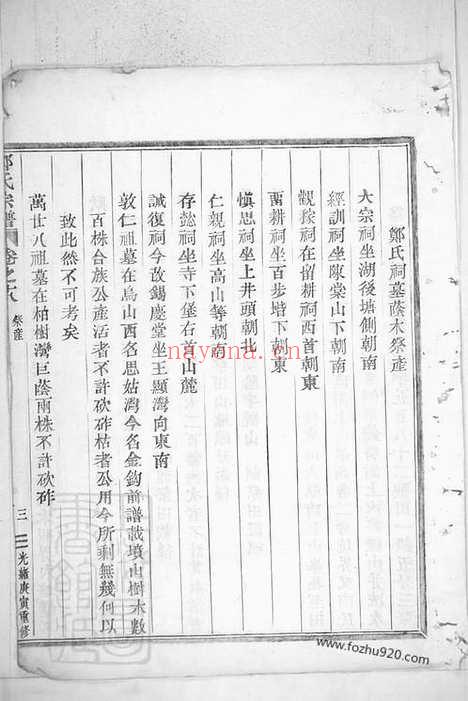 鄭氏祠墓蔭木祭產
大宗祠坐湖後塘側朝南
經訓祠坐陳棠山下朝南
觀稼祠在留耕祠西首朝東
留耕祠坐百步堦下朝東
愼思祠坐上井頭朝北
仁親祠坐高山等朝南
存懿祠坐寺下堡右首山麓
誠復祠今改錫慶堂坐王顯灣向東南
敦仁祖墓在烏山西名思姑灣今名金鈎前譜載墳山樹木數
百株合族公產活者不許砍斫枯者公用今所剩無幾何以
致此然不可考矣
萬世八祖墓在柏樹灣巨蔭兩株不許砍斫
鄭氏宗譜
卷之
祭產
三
光緒庚寅重修
nayona.cn
www.fozhu920.com